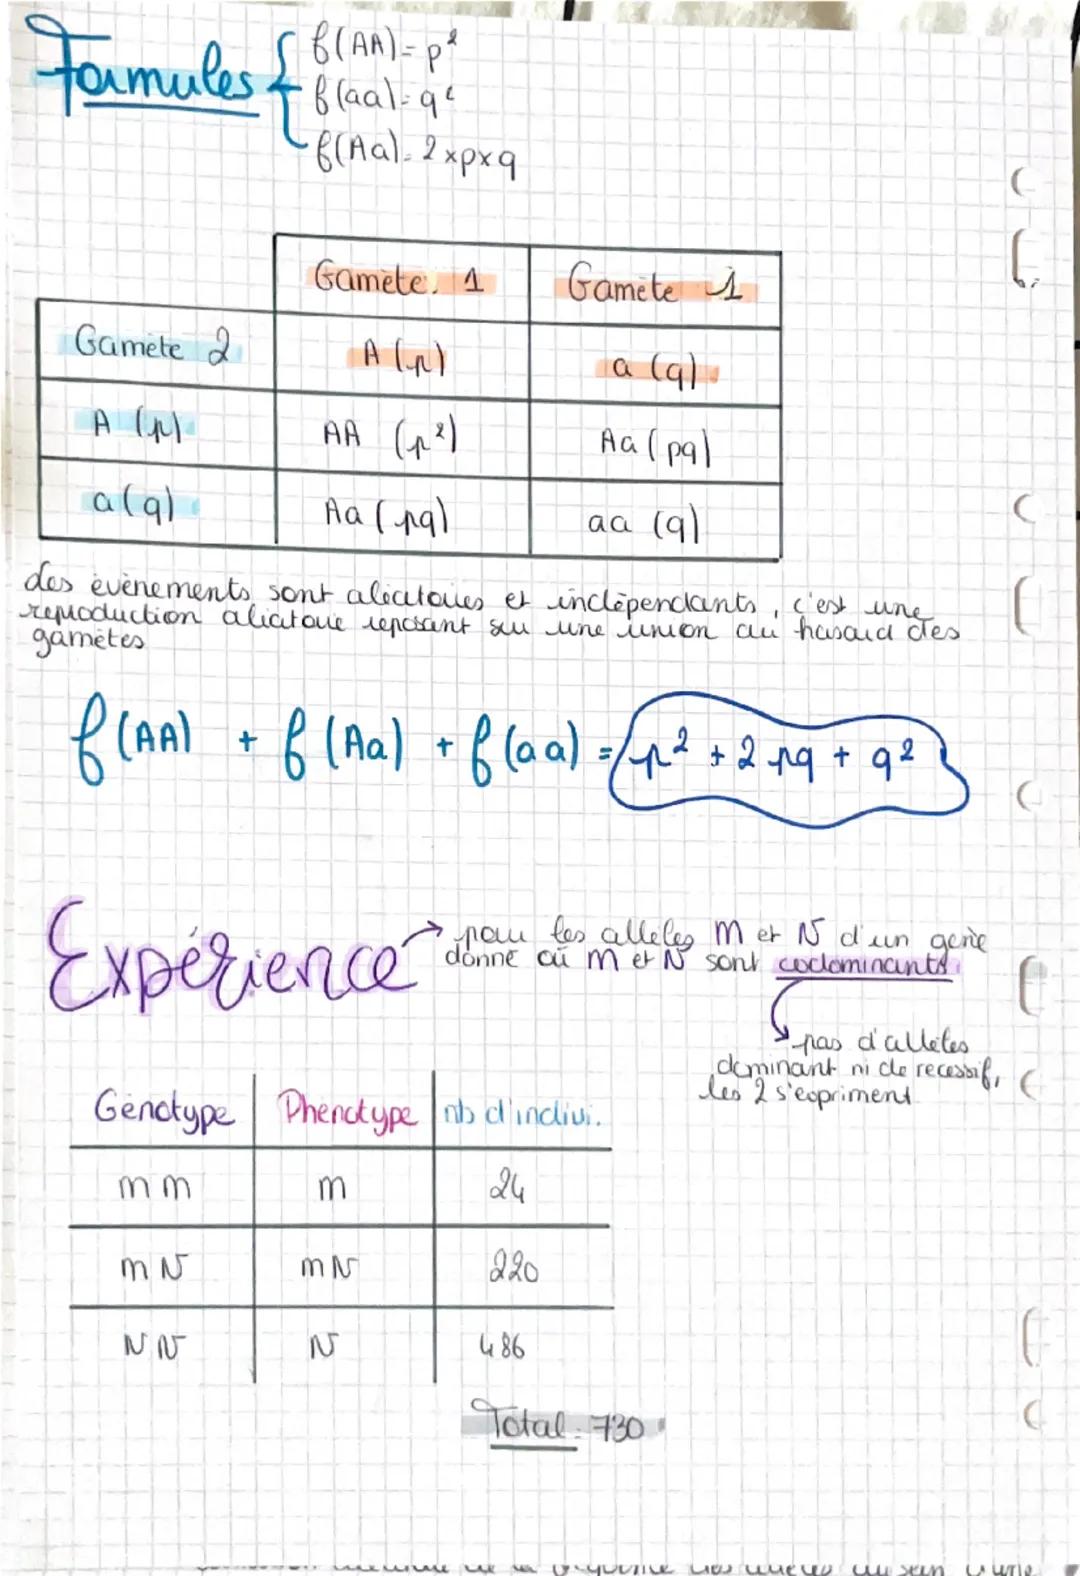 Formules
f(AA) = p²
f(aa) = q²
f(Aa) = 2×p×q
Gamète 1 Gamète 1
Gamète 2 A (p) a (q)
A (p) AA (p²) Aa (pq)
a (q) Aa (pq) aa (q)
des évènements sont aléatoires et indépendants, c'est une
reproduction aliatoire reposant sur une union au hasard des
gamètes
f(AA) + f(Aa) + f(aa) = p² + 2pq + q²
Expérience → pour les alleles M et N d'un gène
donné où M et N sont codominants
pas d'allèles
dominant ni de recessif,
les 2 s'expriment
Génotype Phénotype nb d'indivi.
mm m 24
mN mN 220
NN N 486
Total : 730